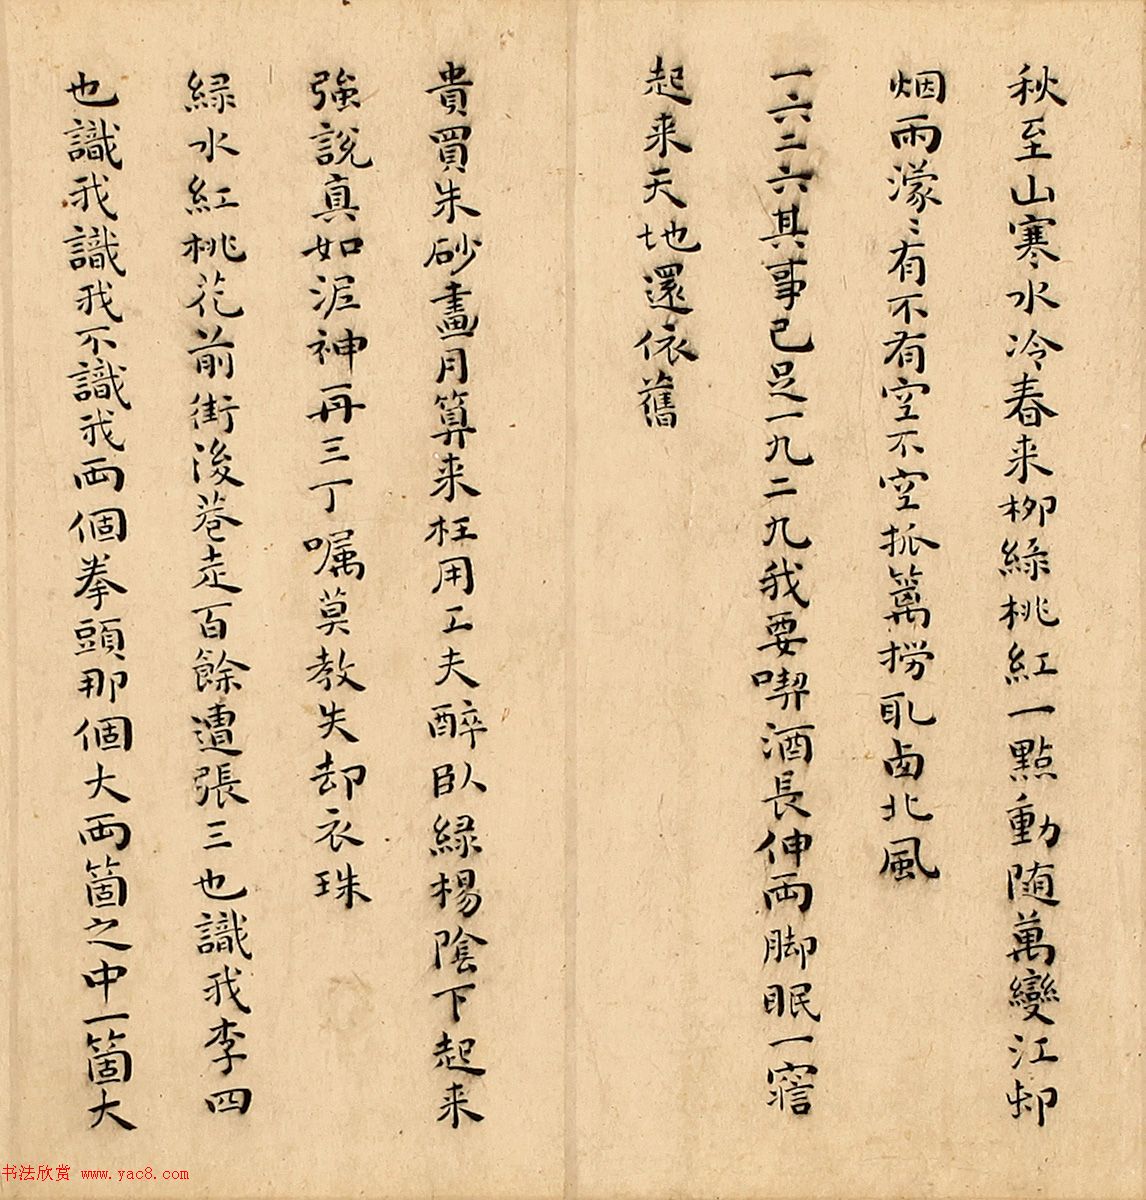 秋至山寒水冷春来柳緑桃紅一點動随萬變江邨
烟雨濛〻有不有空不空抓篱撈取西北風
一六二六其事已足一九二九我要喫酒長伸両脚眠一寤
起来天地還依舊
貴買朱砂畫月算来枉用工夫醉臥緑楊陰下起来
強說真如泥神再三丁嘱莫教失却衣珠
緑水紅桃花前街後巷走百餘遭張三也識我李四
也識我識我不識我両個拳頭那個大両箇之中一箇大
书法欣赏 www.yac8.com